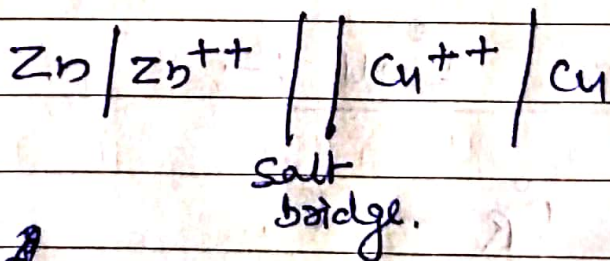 Zn | Zn++ || Cu++ | Cu
Salt
bridge.